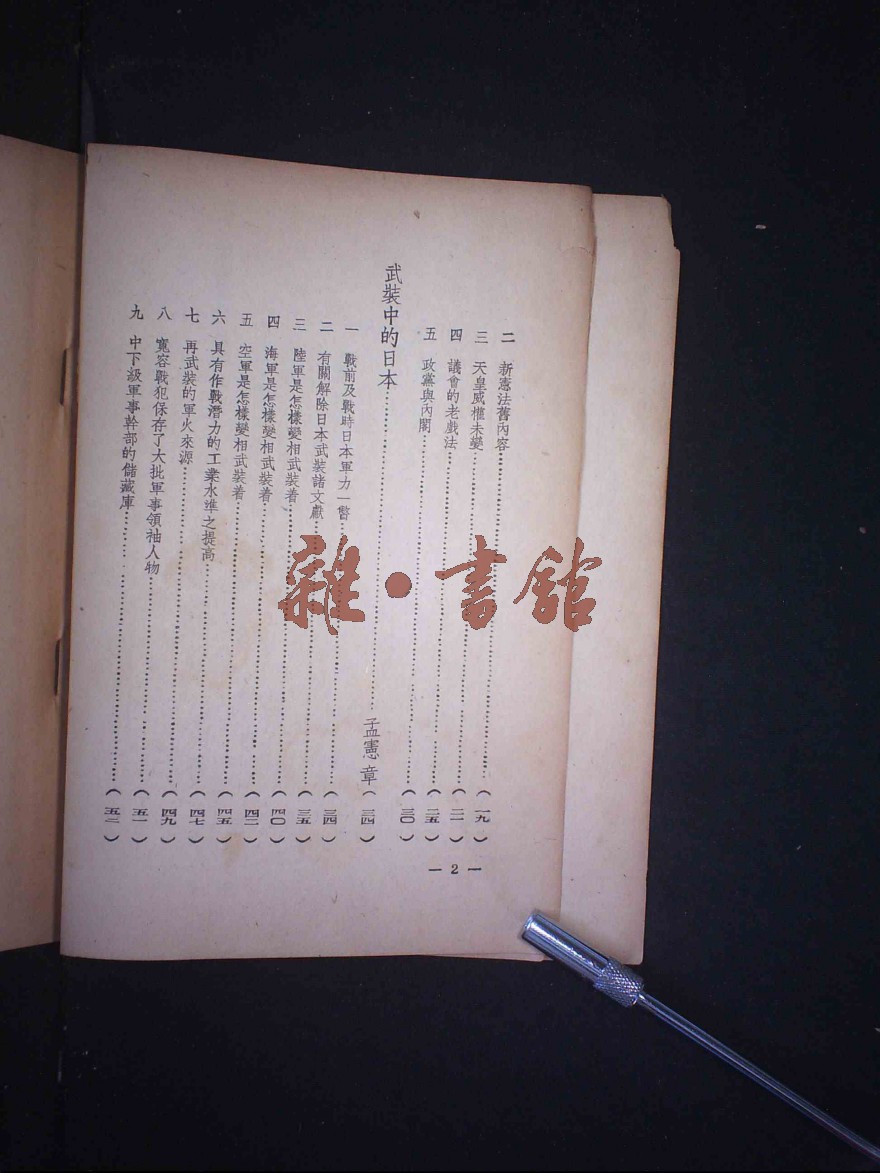 二 新憲法舊內容……（一九）
三 天皇威權未變……（二一）
四 議會的老戲法……（二五）
五 政黨與內閣……（三〇）
武裝中的日本……孟憲章（三四）
一 戰前及戰時日本軍力一瞥……（三四）
二 有關解除日本武裝諸文獻……（三五）
三 陸軍是怎樣變相武裝着……（四〇）
四 海軍是怎樣變相武裝着……（四二）
五 空軍是怎樣變相武裝着……（四五）
六 具有作戰潛力的工業水準之提高……（四七）
七 再武裝的軍火來源……（四九）
八 寬容戰犯保存了大批軍事領袖人物……（五一）
九 中下級軍事幹部的儲藏庫……（五二）
— 2 —
雜·書館